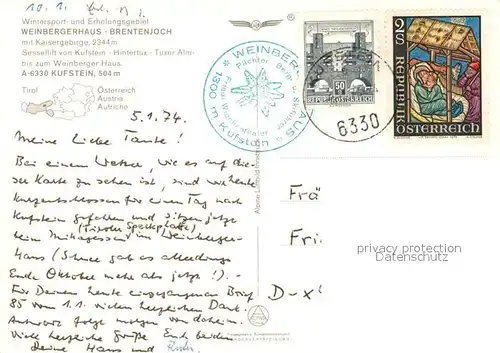 10.1.
Wintersport- und Erholungsgebiet
WEINBERGERHAUS - BRENTENJOCH
mit Kaisergebirge, 2344m
Sessellift von Kufstein - Hintertux - Tuxer Alm-
bis zum Weinberger Haus.
A-6330 KUFSTEIN, 504 m
Tirol
Österreich
Austria
Autriche
WEINBERGERHAUS
1300 m Kufstein
50
REPUBLIK ÖSTERREICH
2S
REPUBLIK
ÖSTERREICH
6330
5.1.74.
Meine Liebe Tante!
Bei einem Wetter, wie es auf die-
ser Karte zu sehen ist, sind wir heute
kurzentschlossen für einen Tag nach
Kufstein gefahren und sitzen jetzt
(Tiroler Speckplatte)
beim Mittagessen im Weinberger-
Haus (Schnee gab es allerdings
Ende Oktober mehr als jetzt!).-
Für Deinen heute eingegangenen Brief
85 vom 1.1. vielen herzlichen Dank.
Antwort folgt morgen von daheim.
Viele herzliche Grüße Euch beiden
Deine Hans und Ruth
Frä
Fri
D-x
privacy protection
DELCAMPE.NET